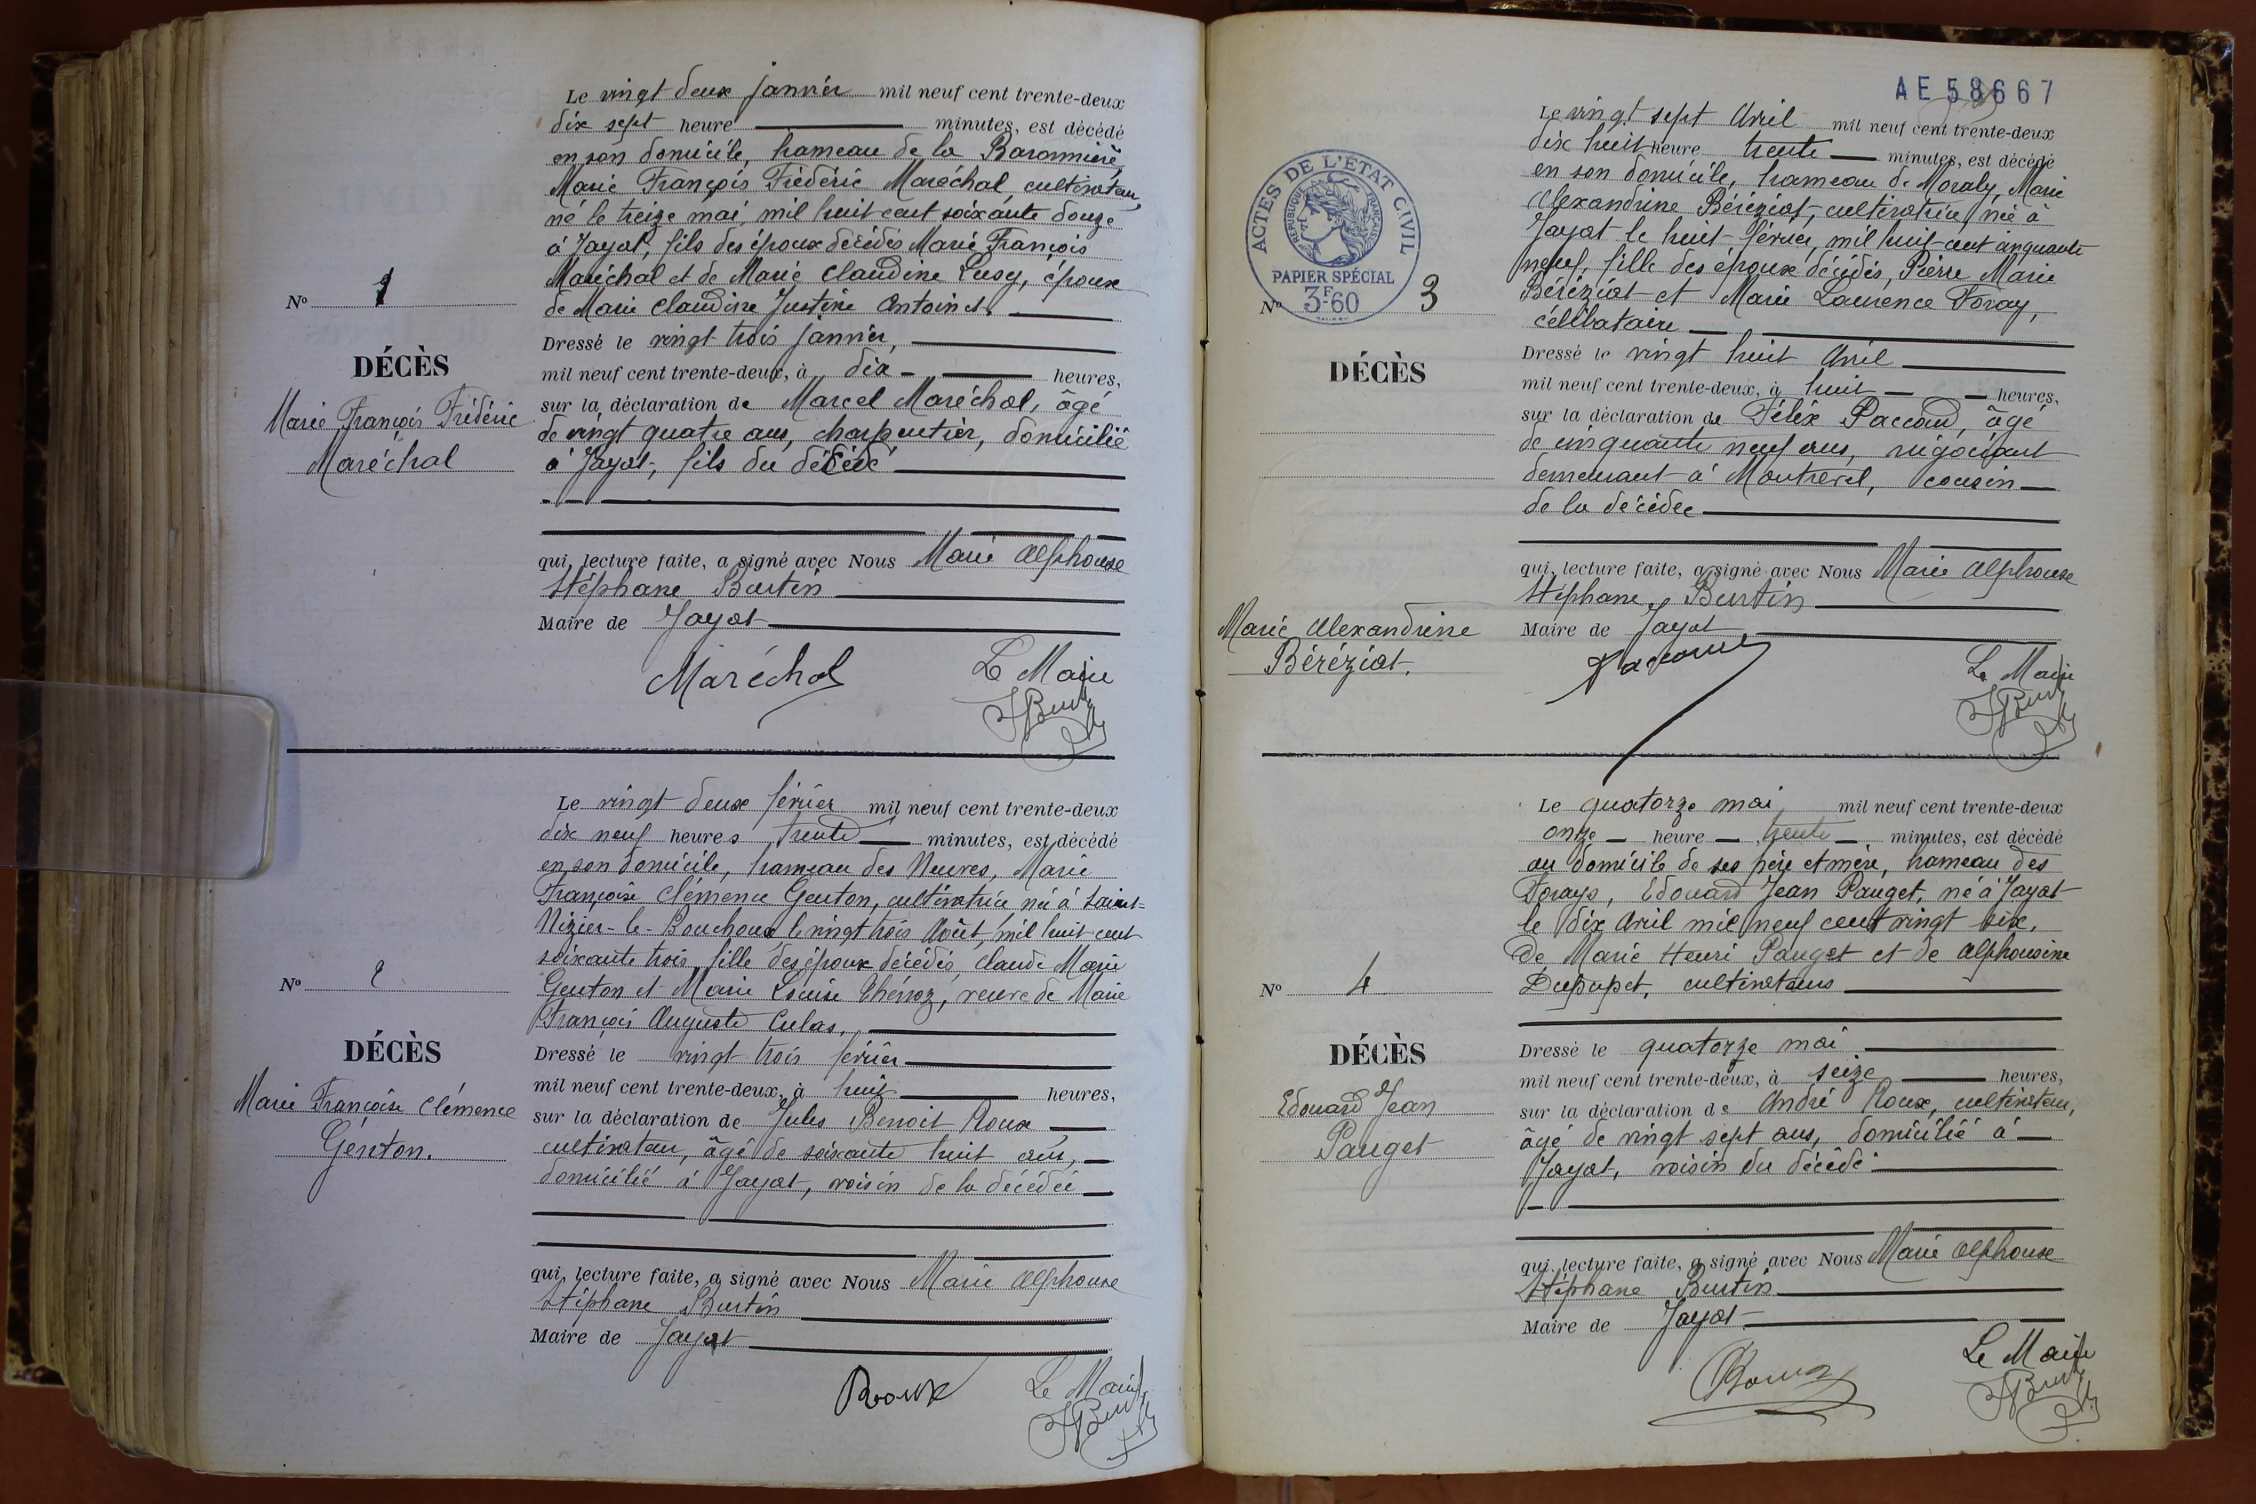 Le vingt deux janvier mil neuf cent trente-deux
dix sept heure minutes, est décédé
en son domicile, hameau de la Baronnière
Marie François Frédéric Maréchal, cultivateur,
né le treize mai, mil huit cent soixante douze
à Jayat, fils des époux décédés Marie François
Maréchal et de Marie Claudine Lusy, époux
de Marie Claudine Justine Antoinet.
Nº 1
DÉCÈS
Marie François Frédéric
Maréchal
Dressé le vingt trois janvier,
mil neuf cent trente-deux, à dix heures,
sur la déclaration de Marcel Maréchal, âgé
de vingt quatre ans, charpentier, domicilié
à Jayat, fils du décédé
qui, lecture faite, a signé avec Nous Marie Alphonse
Stéphane Burtin
Maire de Jayat
Maréchal
Le Maire
SBurtin
Le vingt deux février mil neuf cent trente-deux
dix neuf heures trente minutes, est décédé
en son domicile, hameau des Neuves, Marie
Françoise Clémence Genton, cultivatrice née à Saint-
Nizier-le-Bouchoux le vingt trois Août, mil huit cent
soixante trois, fille des époux décédés, Claude Marie
Genton et Marie Louise Thénoz, veuve de Marie
François Auguste Culas.
Nº 2
DÉCÈS
Marie Françoise Clémence
Genton.
Dressé le vingt trois février
mil neuf cent trente-deux, à huit heures,
sur la déclaration de Jules Benoit Roux
cultivateur, âgé de soixante huit ans,
domicilié à Jayat, voisin de la décédée
qui, lecture faite, a signé avec Nous Marie Alphonse
Stéphane Burtin
Maire de Jayat
Roux
Le Maire
SBurtin
AE 58667
ACTES DE L'ÉTAT CIVIL
RÉPUBLIQUE FRANÇAISE
PAPIER SPÉCIAL
3F60
Le vingt sept Avril mil neuf cent trente-deux
dix huit heure trente minutes, est décédé
en son domicile, hameau de Moraly, Marie
Alexandrine Béréziat, cultivatrice née à
Jayat le huit février, mil huit cent cinquante
neuf, fille des époux décédés, Pierre Marie
Béréziat et Marie Laurence Foray,
célibataire
Nº 3
DÉCÈS
Marie Alexandrine
Béréziat.
Dressé le vingt huit Avril
mil neuf cent trente-deux, à huit heures,
sur la déclaration de Félix Paccoud, âgé
de cinquante neuf ans, négociant
demeurant à Montrevel, cousin
de la décédée
qui, lecture faite, a signé avec Nous Marie Alphonse
Stéphane Burtin
Maire de Jayat
Paccoud
Le Maire
SBurtin
Le quatorze mai mil neuf cent trente-deux
onze heure trente minutes, est décédé
au domicile de ses père et mère, hameau des
Forays, Edouard Jean Pauget, né à Jayat
le dix Avril mil neuf cent vingt six.
de Marie Henri Pauget et de Alphonsine
Dupupet, cultivateurs
Nº 4
DÉCÈS
Edouard Jean
Pauget
Dressé le quatorze mai
mil neuf cent trente-deux, à seize heures,
sur la déclaration de André Roux, cultivateur,
âgé de vingt sept ans, domicilié à
Jayat, voisin du décédé
qui, lecture faite, a signé avec Nous Marie Alphonse
Stéphane Burtin
Maire de Jayat
Roux
Le Maire
SBurtin